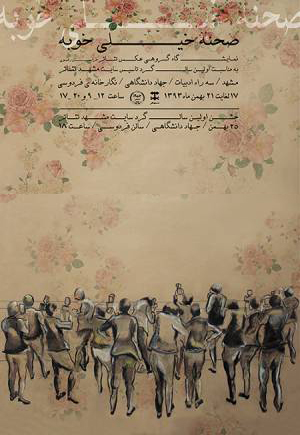 صحنه خیلی خوبه
صحنه خیلی خوبه
نمایشگاه گروهی عکس تئاتر
به مناسبت اولین سالگرد تاسیس سایت مشهد تئاتر
مشهد / سه راه ادبیات / جهاد دانشگاهی / نگارخانه ی فردوسی
۱۷ لغایت ۲۱ بهمن ماه ۱۳۹۳ ساعت ۱۲_۹ و ۲۰_۱۷
جشن اولین سالگرد سایت مشهد تئاتر
۲۵ بهمن / جهاد دانشگاهی / سالن فردوسی / ساعت ۱۸